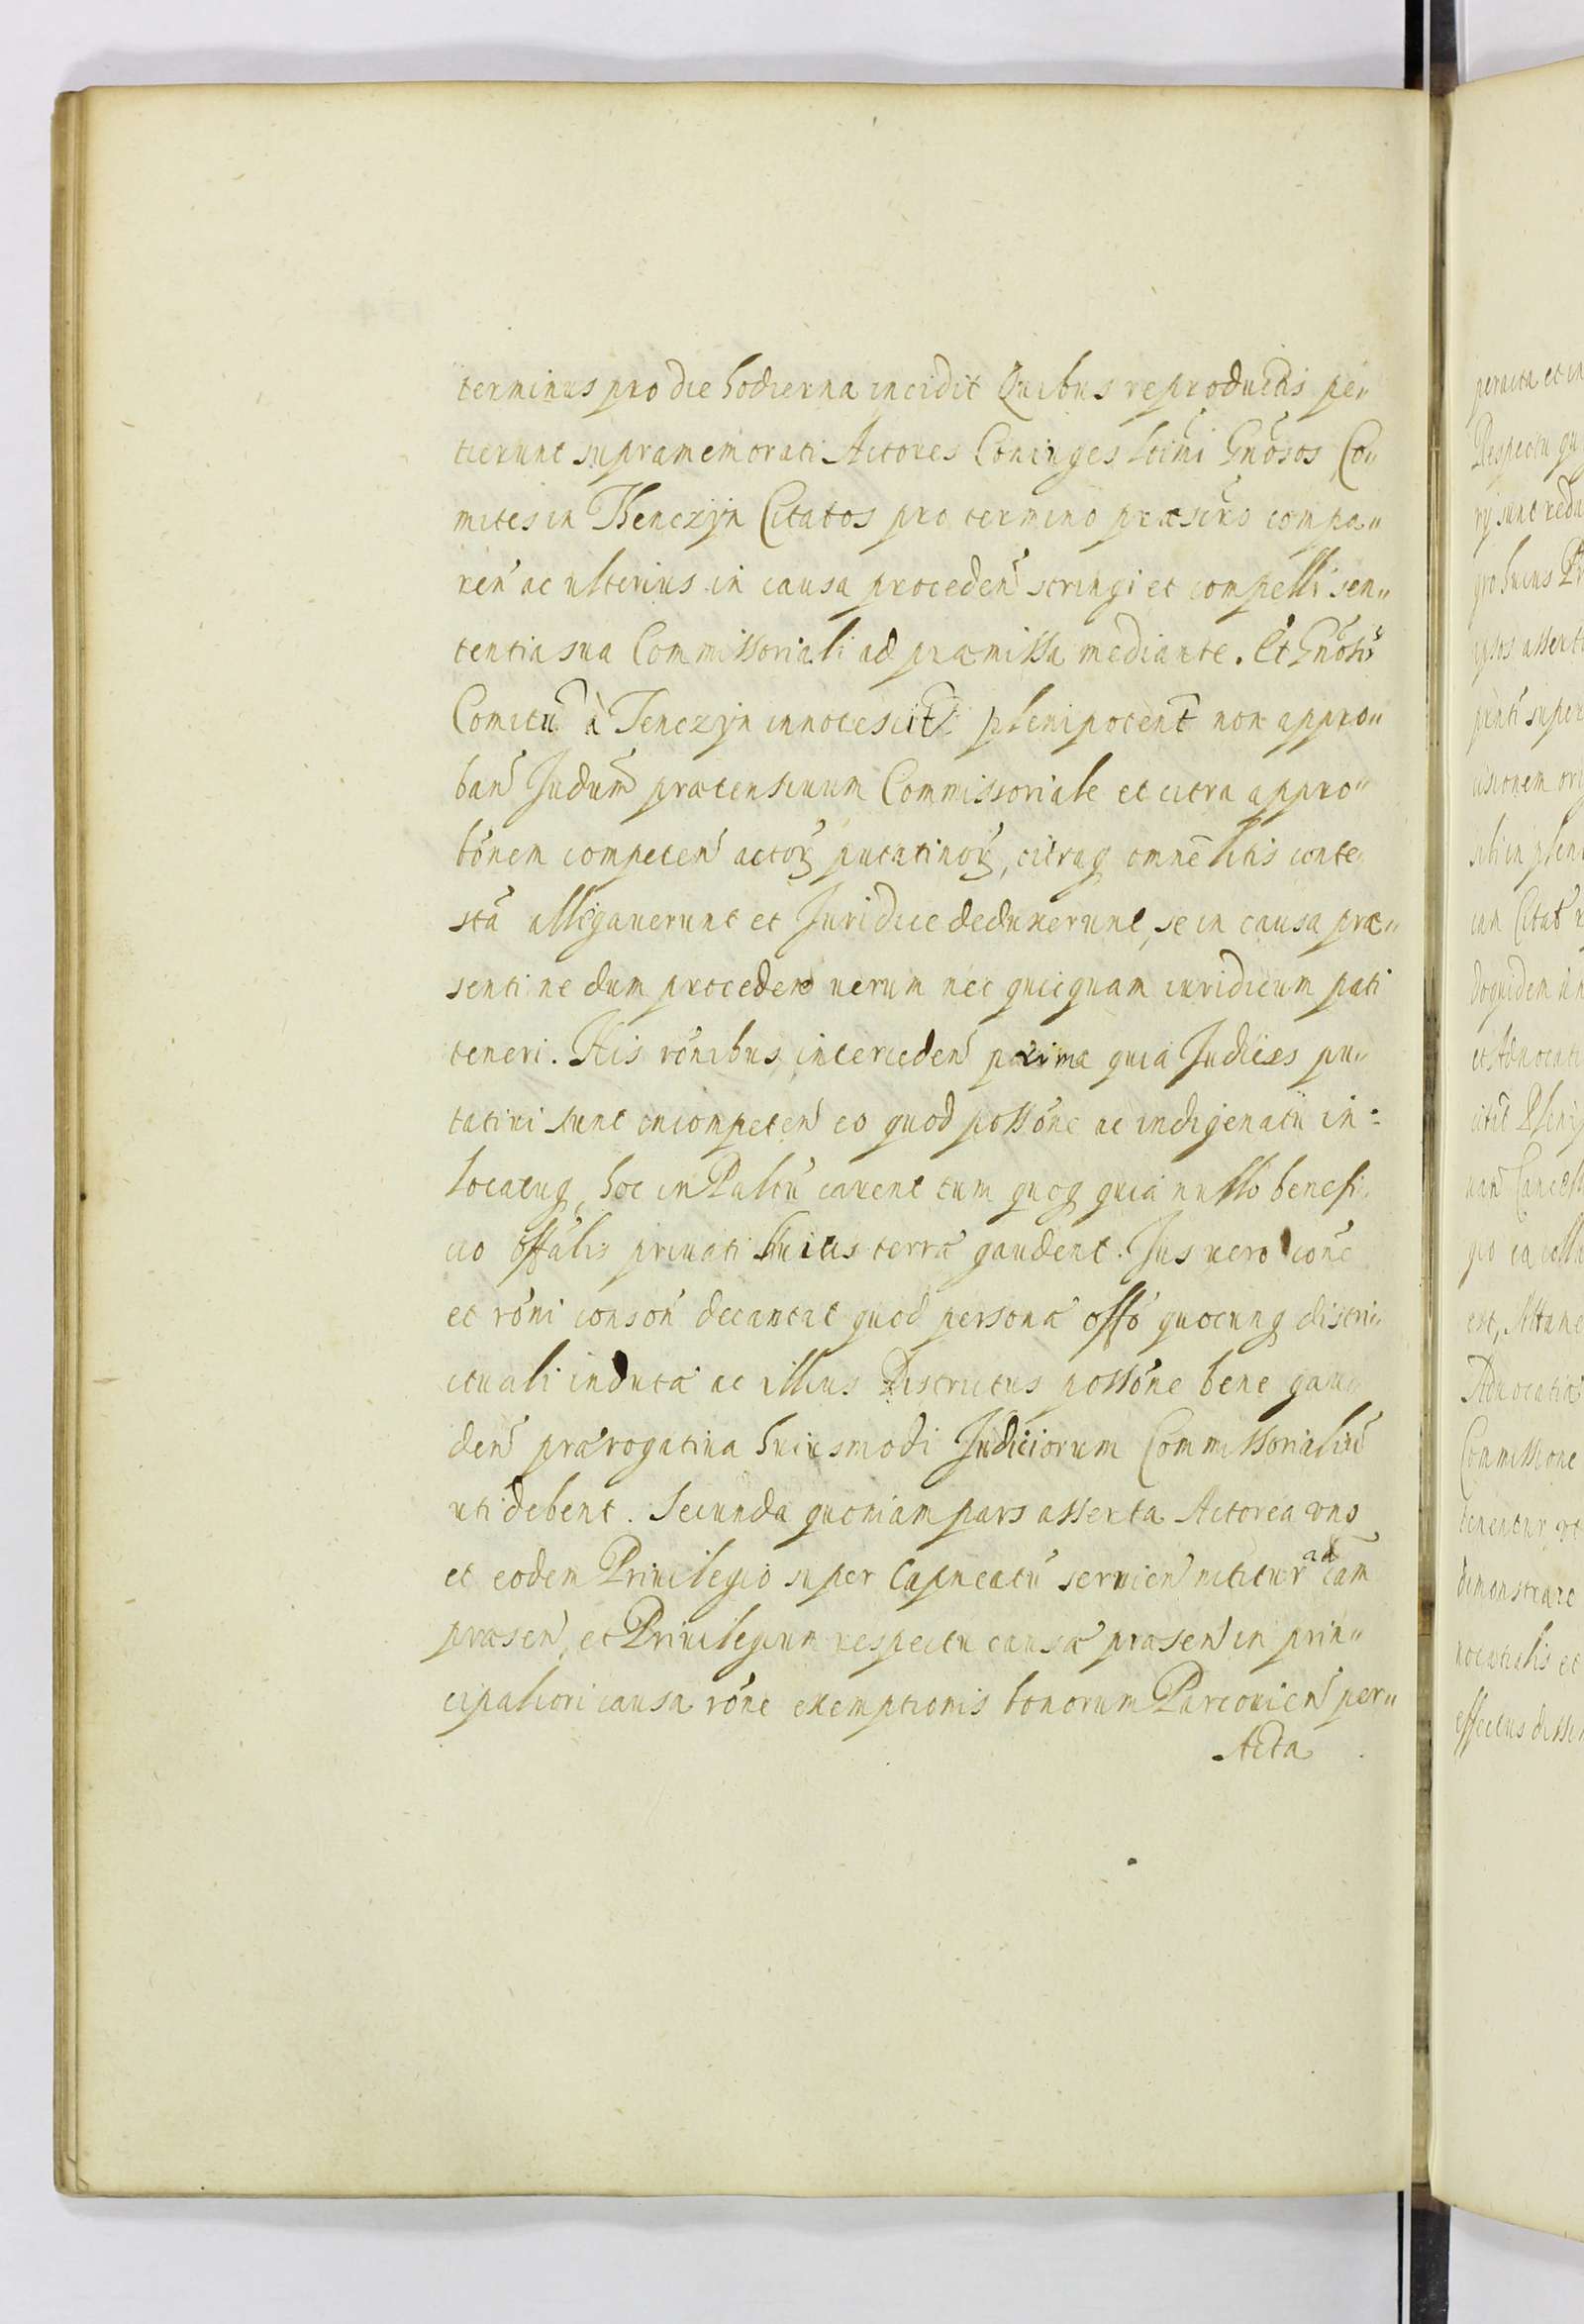 terminus pro die hodierna incidit Quibus reproductis pe„
tierunt supramemorati Actores Coniuges ltimi Gnosos Co„
mites in Thenczÿn Citatos pro termino præsens compa„
ren ac ulterius in causa proceden stringi et compelli sen„
tentia sua Commissoriali ad præmissa mediante. Et Gnosi
Comitu à Tenczÿn plenipotent non appro„
ban Judum prætensiuum Commissoriale et citra appro„
bonem competen actoꝝ putatiuoꝝ, citraq omne litis conte„
sta allegauerunt et Juridice deduxerunt, se in causa præ„
senti ne dum proceden uerum nec quicquam iuridicum pati
teneri. His ronibus interceden prima quia Judices pu„
tatiui sunt incompeten eo quod possone ac indigenatu in=
locatuq hoc in Paltu carent tum quoq quia nullo benefi„
cio offalis priuati huius terræ gaudent. Jus uero cone
et roni conson decantat quod personæ offo quocunq distri„
ctuali indutæ ac illius Districtus possone bene gau„
den prærogatiua huiusmodi Judiciorum Commissorialiu
uti debent. Secunda quoniam pars asserta Actorea uno
et eodem Priuilegio super Capneatu seruien nititur ad cam
præsen, et Priuilegium respectu causæ præsen in prin„
cipaliori causa rone exemptionis bonorum Parcouien per„
Acta
peracta et in
Respectu qu
rÿ sunt redu
pro huius Pr
ipsos asserti
pnti super
cisionem ori
sibi in pleni
cam Citat
doquidem
et Aduocati
citit Pleni
Cancell
gio ea
est, Attame
Aduocatia
Commissione
tenentur, ut
dimonstrare
uocatialis et
effectus